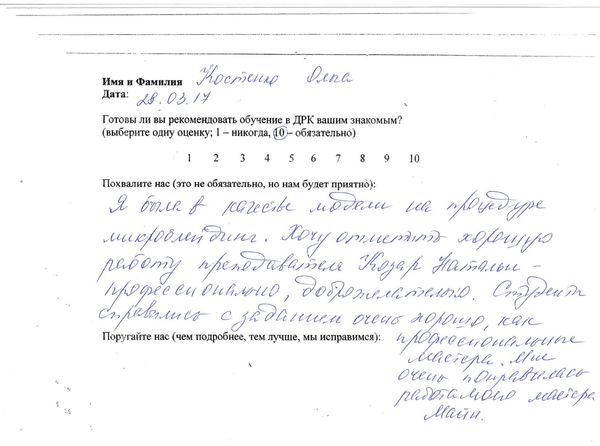 Имя и Фамилия Костенко Ольга
Дата: 28.03.17
Готовы ли вы рекомендовать обучение в ДРК вашим знакомым?
(выберите одну оценку; 1 – никогда, 10 – обязательно)
1 2 3 4 5 6 7 8 9 10
Похвалите нас (это не обязательно, но нам будет приятно):
Я была в качестве модели на процедуре
микроблейдинг. Хочу отметить хорошую
работу преподавателя Козар Натальи –
профессионально, доброжелательно. Студенты
справились с заданием очень хорошо, как
Поругайте нас (чем подробнее, тем лучше, мы исправимся):
профессиональные
мастера. Мне
очень понравилась
работа моего мастера
Майи.